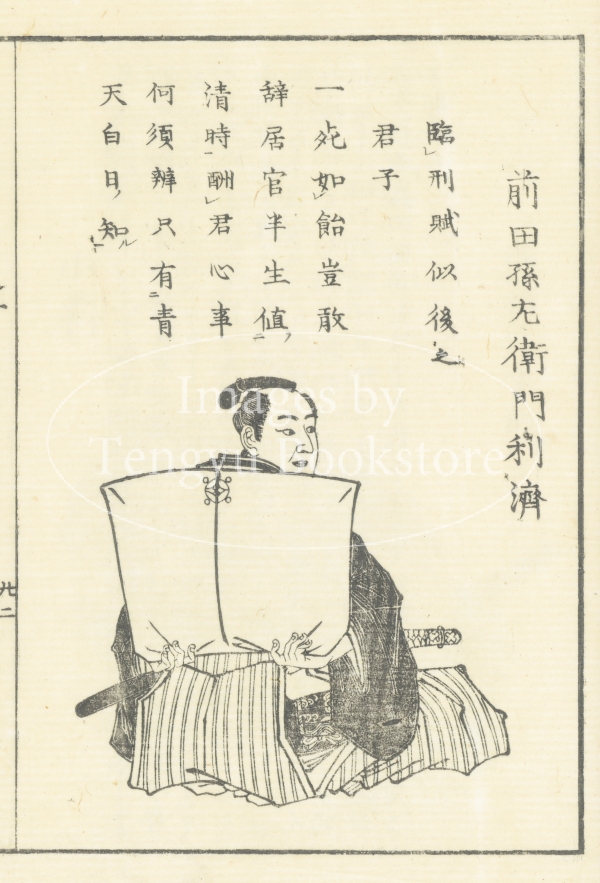 前田孫左衛門利濟
臨レ刑賦似後之
君子
一死如レ飴豈敢
辞居官半生値ニ
清時一酬レ君心事
何須辨只有ニ青
天白日知ル一
廿二
Images by
Tengyu Bookstore